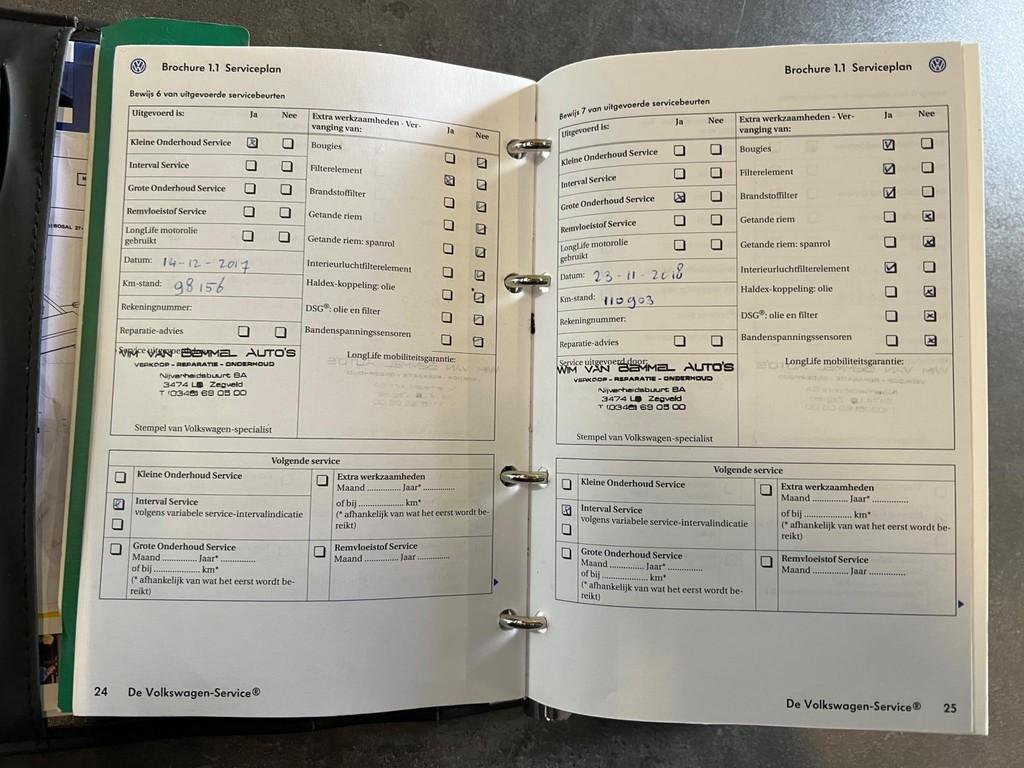 Brochure 1.1 Serviceplan
Bewijs 6 van uitgevoerde servicebeurten
Uitgevoerd is: Ja Nee
Kleine Onderhoud Service
Interval Service
Grote Onderhoud Service
Remvloeistof Service
LongLife motorolie
gebruikt
Datum: 14-12-2017
Km-stand: 98156
Rekeningnummer:
Reparatie-advies
Service uitgevoerd door:
WIM VAN BEMMEL AUTO'S
VERKOOP - REPARATIE - ONDERHOUD
Nijverheidsbuurt 8A
3474 LB Zegveld
T (0348) 69 05 00
Stempel van Volkswagen-specialist
Extra werkzaamheden - Ver-
vanging van: Ja Nee
Bougies
Filterelement
Brandstoffilter
Getande riem
Getande riem: spanrol
Interieurluchtfilterelement
Haldex-koppeling: olie
DSG®: olie en filter
Bandenspanningssensoren
LongLife mobiliteitsgarantie:
Volgende service
Kleine Onderhoud Service
Interval Service
volgens variabele service-intervalindicatie
Grote Onderhoud Service
Maand ............. Jaar* .............
of bij ............. km*
(* afhankelijk van wat het eerst wordt be-
reikt)
Extra werkzaamheden
Maand ............. Jaar* .............
of bij ............. km*
(* afhankelijk van wat het eerst wordt be-
reikt)
Remvloeistof Service
Maand ............. Jaar .............
24 De Volkswagen-Service®
Brochure 1.1 Serviceplan
Bewijs 7 van uitgevoerde servicebeurten
Uitgevoerd is: Ja Nee
Kleine Onderhoud Service
Interval Service
Grote Onderhoud Service
Remvloeistof Service
LongLife motorolie
gebruikt
Datum: 23-11-2018
Km-stand: 110903
Rekeningnummer:
Reparatie-advies
Service uitgevoerd door:
WIM VAN BEMMEL AUTO'S
VERKOOP - REPARATIE - ONDERHOUD
Nijverheidsbuurt 8A
3474 LB Zegveld
T (0348) 69 05 00
Stempel van Volkswagen-specialist
Extra werkzaamheden - Ver-
vanging van: Ja Nee
Bougies
Filterelement
Brandstoffilter
Getande riem
Getande riem: spanrol
Interieurluchtfilterelement
Haldex-koppeling: olie
DSG®: olie en filter
Bandenspanningssensoren
LongLife mobiliteitsgarantie:
Volgende service
Kleine Onderhoud Service
Interval Service
volgens variabele service-intervalindicatie
Grote Onderhoud Service
Maand ............. Jaar* .............
of bij ............. km*
(* afhankelijk van wat het eerst wordt be-
reikt)
Extra werkzaamheden
Maand ............. Jaar* .............
of bij ............. km*
(* afhankelijk van wat het eerst wordt be-
reikt)
Remvloeistof Service
Maand ............. Jaar .............
De Volkswagen-Service® 25